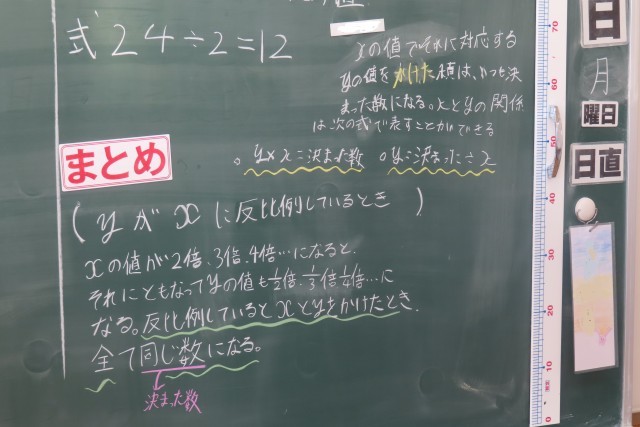 式 24÷2=12
xの値でそれに対応する
yの値をかけた積は、いつも決
まった数になる。xとyの関係
は次の式で表すことができる
。y×x=決まった数 。y=決まった÷x
まとめ
(yがxに反比例しているとき)
xの値が2倍、3倍、4倍…になると、
それにともなってyの値も1/2倍、1/3倍、1/4倍…に
なる。反比例しているとxとyをかけたとき、
全て同じ数になる。
決まった数
日
月
曜日
日直
70
60
50
40
30
20
10
0